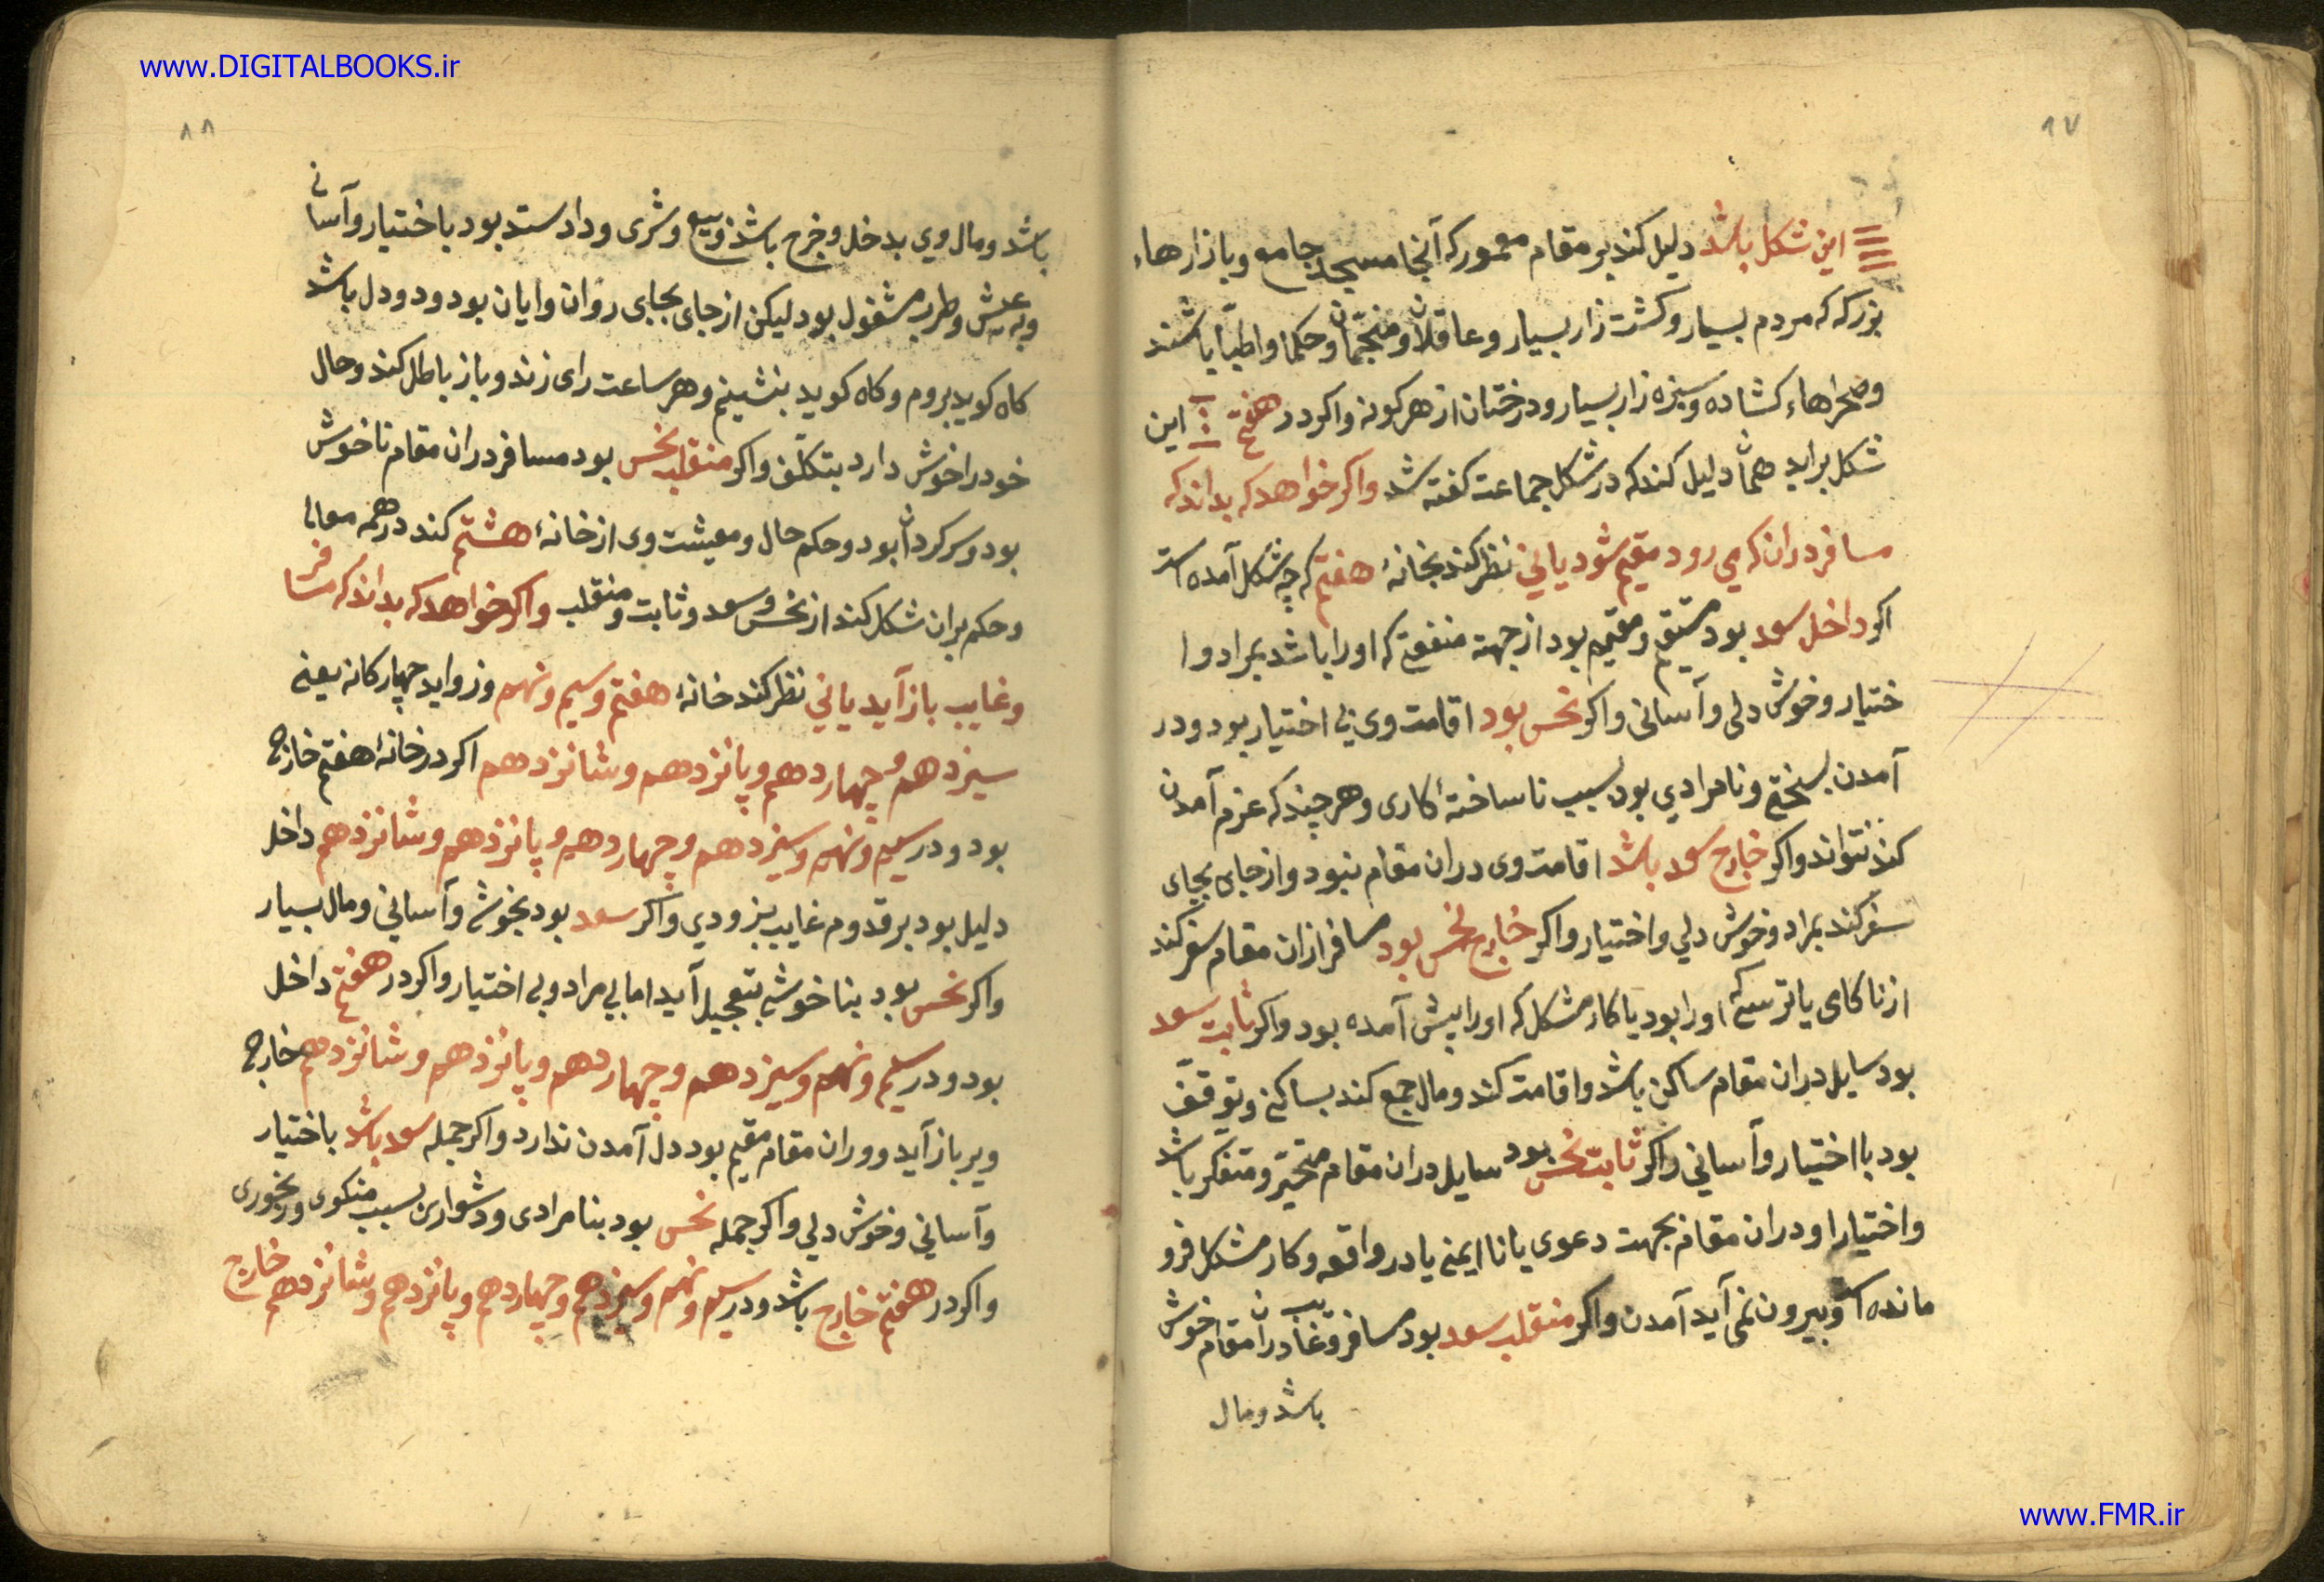 www.DIGITALBOOKS.ir
۸۷
این شکل باشد دلیل کند بر مقام معمور که آنجا مسجد جامع و بازارهاء
بزرک که مردم بسیار و کشت زار بسیار و عاقلان و منجمان و حکما و اطبا باشند
و صحراهاء کشاده و سبزه زار بسیار و درختان از هر کونه و اکر در هفتم این
شکل براید همان دلیل کند که در شکل جماعت کفته شد و اکر خواهد که بداند که
مسافر دران که می رود مقیم شود یا نی نظر کند بخانهٔ هفتم که چه شکل آمده است
اکر داخل سعد بود متیقم و مقیم بود از جهت منفعتی که او را باشد بمراد و ا
ختیار و خوش دلی و آسانی و اکر نحس بود اقامت وی بی اختیار بود و در
آمدن بسختی و نامرادی بود بسبب ناساختهٔ کاری و هر چند که عزم آمدن
کند نتواند و اکر خارج سعد باشد اقامت وی دران مقام نبود و از جای بجای
سفر کند بمراد و خوش دلی و اختیار و اکر خارج نحس بود مسافر ازان مقام سفر کند
از ناکامی یا ترسی که او را بود یا کار مشکل که او را پیش آمده بود و اکر ثابت سعد
بود سایل دران مقام ساکن باشد و اقامت کند و مال جمع کند بساکنی و توقف
بود با اختیار و آسانی و اکر ثابت نحس بود سایل دران مقام متحیر و متفکر باشد
و اختیار او دران مقام بجهت دعوی یا نا ایمنی یا در واقعه و کار مشکل فرو
مانده است و بیرون نمی آید آمدن و اکر منقلب سعد بود مسافر و غایب دران مقام خوش
باشد و مال
۸۸
باشد و مال وی بدخل و خرج باشد و بیع و شری و دادستد بود باختیار و آسانی
و به عیش و طرب مشغول بود لیکن از جای بجای روان و ایان بود و دو دل باشد
کاه کوید بروم و کاه کوید بنشینم و هر ساعت رای زند و باز باطل کند و حال
خود را خوش دارد بتکلف و اکر منقلب نحس بود مسافر دران مقام ناخوش
بود و سرکردان بود و حکم حال و معیشت وی از خانهٔ هشتم کند در همه معانی
و حکم بران شکل کند از نحس و سعد و ثابت و منقلب و اکر خواهد که بداند که مسافر
و غایب باز آید یا نی نظر کند خانهٔ هفتم و سیم و نهم و زواید چهارکانه یعنی
سیزدهم و چهاردهم و پانزدهم و شانزدهم اکر در خانهٔ هفتم خارج
بود و در سیم و نهم و سیزدهم و چهاردهم و پانزدهم و شانزدهم داخل
دلیل بود بر قدوم غایب بزودی و اکر سعد بود بخوشی و آسانی و مال بسیار
و اکر نحس بود بنا خوشی بتعجیل آید اما بی مراد و بی اختیار و اکر در هفتم داخل
بود و در سیم و نهم و سیزدهم و چهاردهم و پانزدهم و شانزدهم خارج
ویر باز آید و وران مقام مقیم بود دل آمدن ندارد و اکر جمله سعد باشد باختیار
و آسانی و خوش دلی و اکر جمله نحس بود بنا مرادی و دشواری بسبب منکوی و رنجوری
و اکر در هفتم خارج باشد و در سیم و نهم و سیزدهم و چهاردهم و پانزدهم و شانزدهم خارج
www.FMR.ir